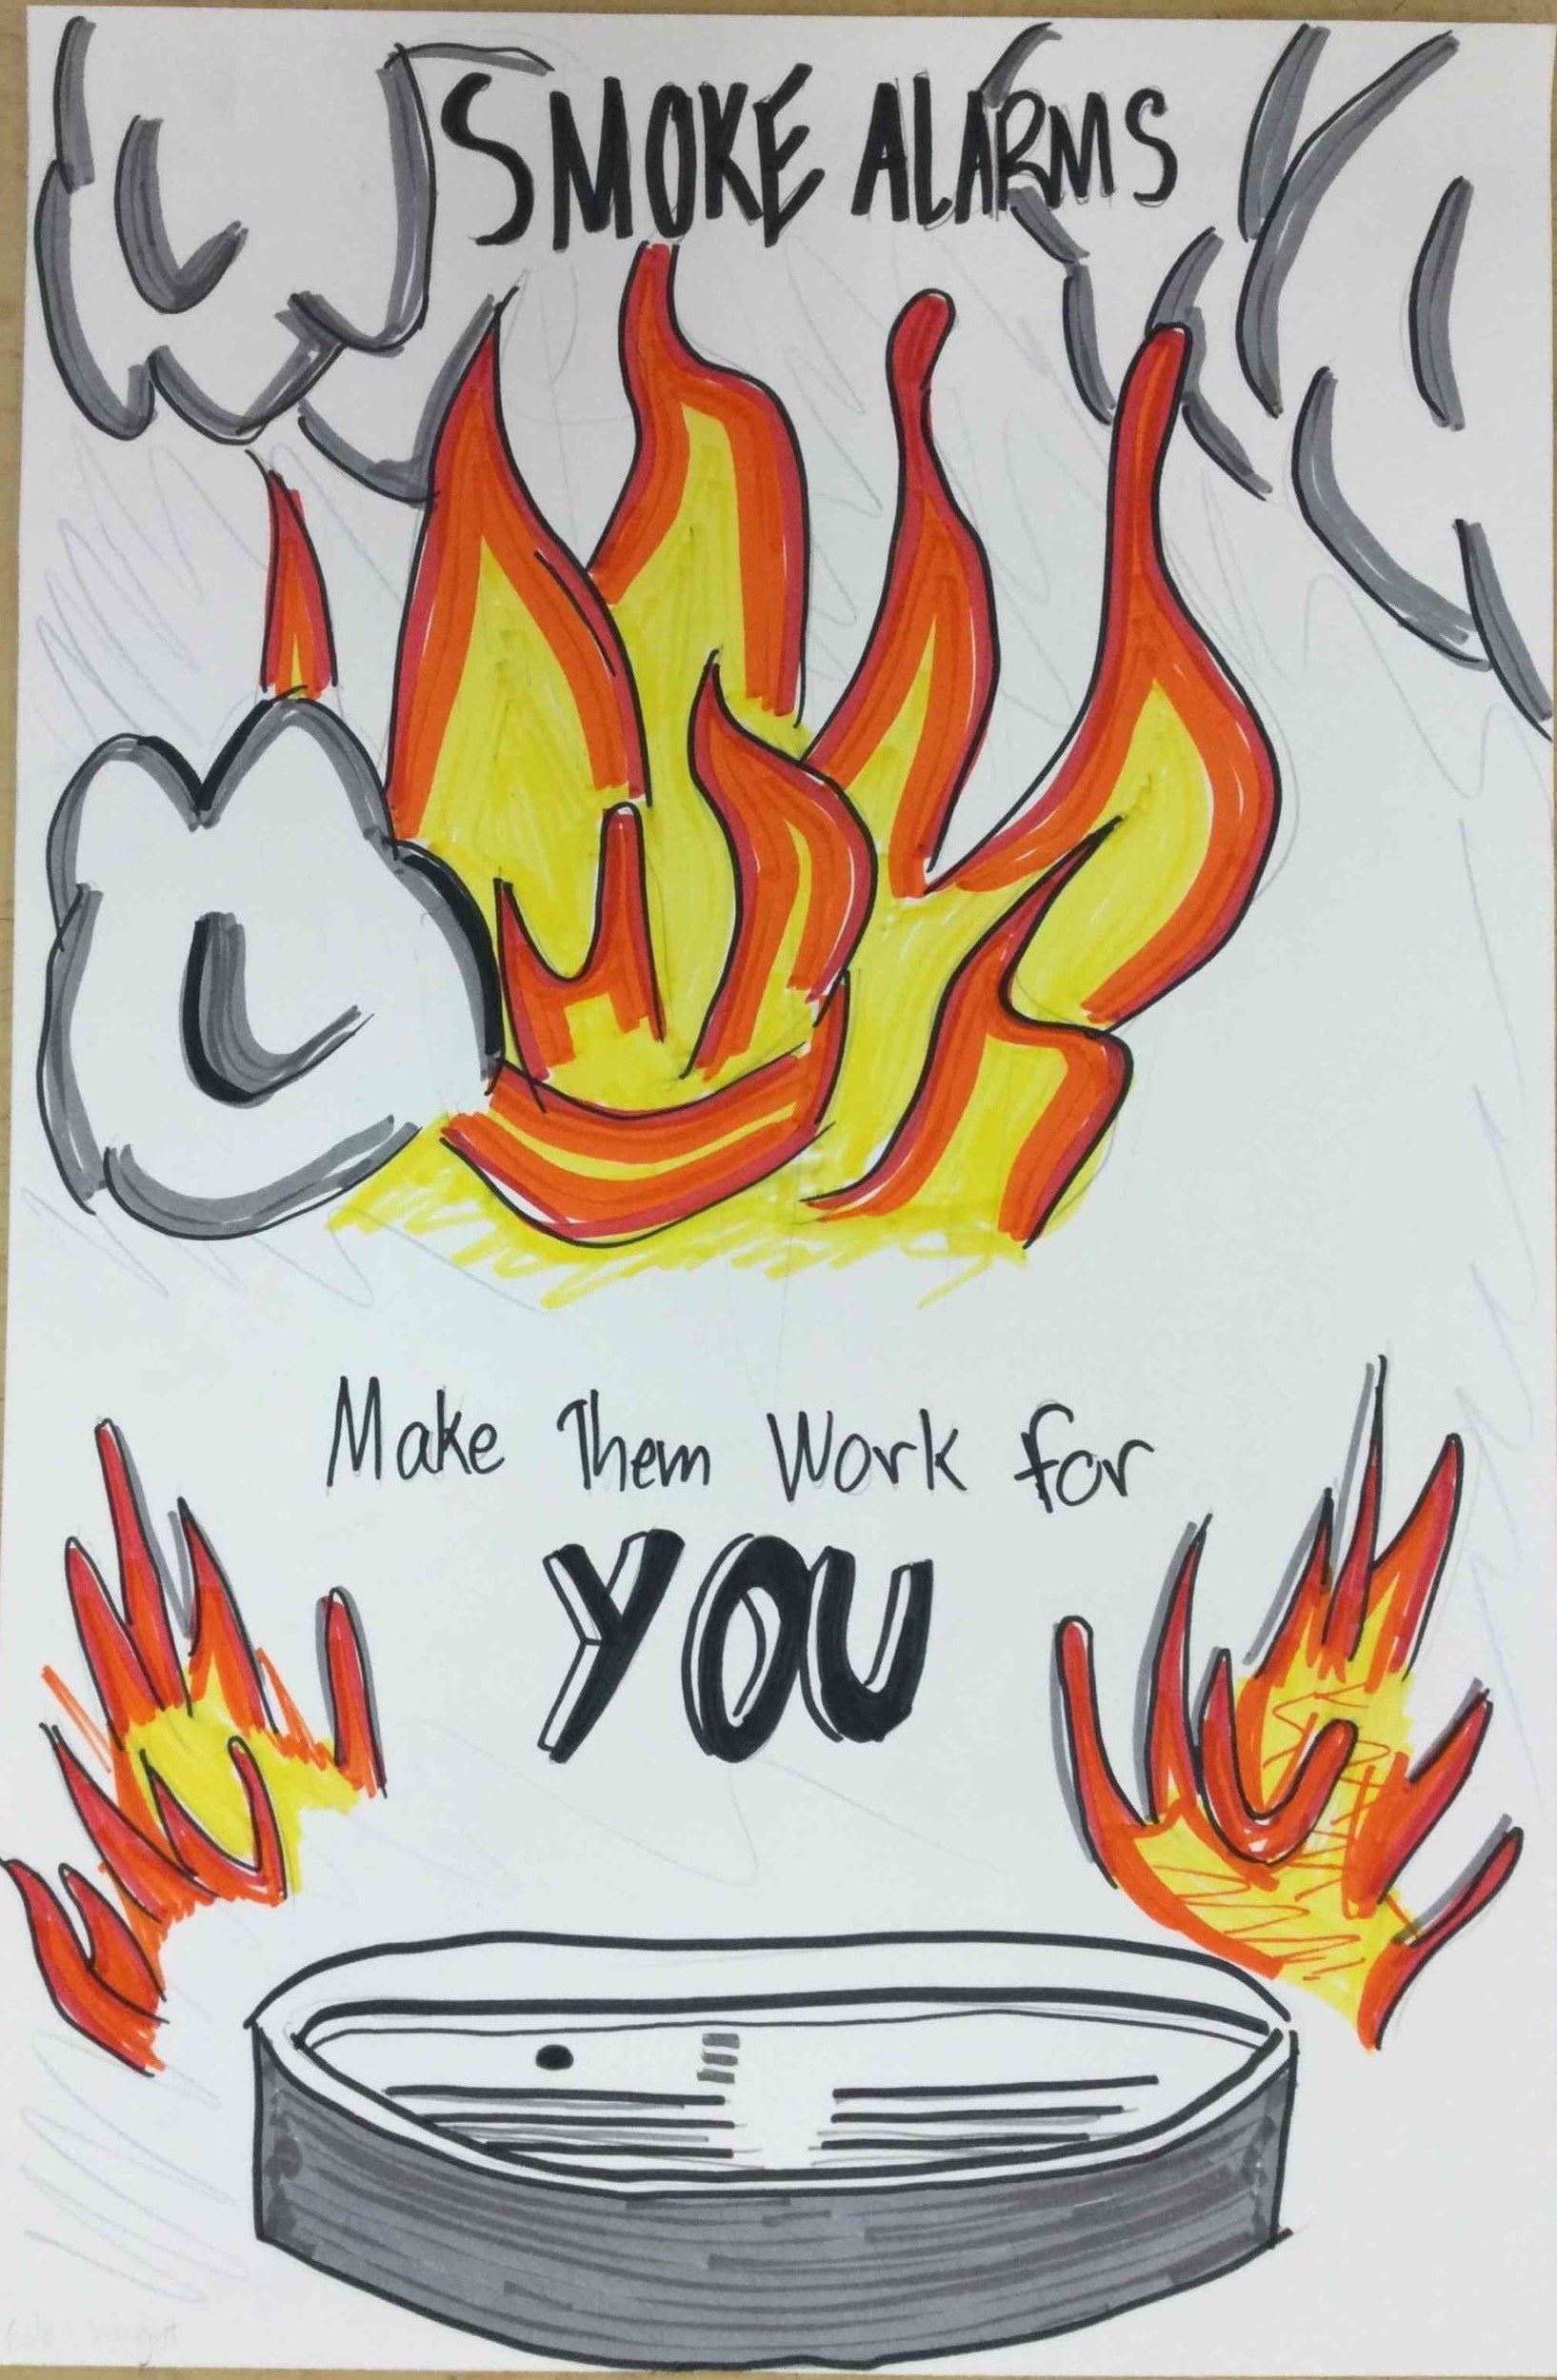 SMOKE ALARMS
Make Them Work for
YOU